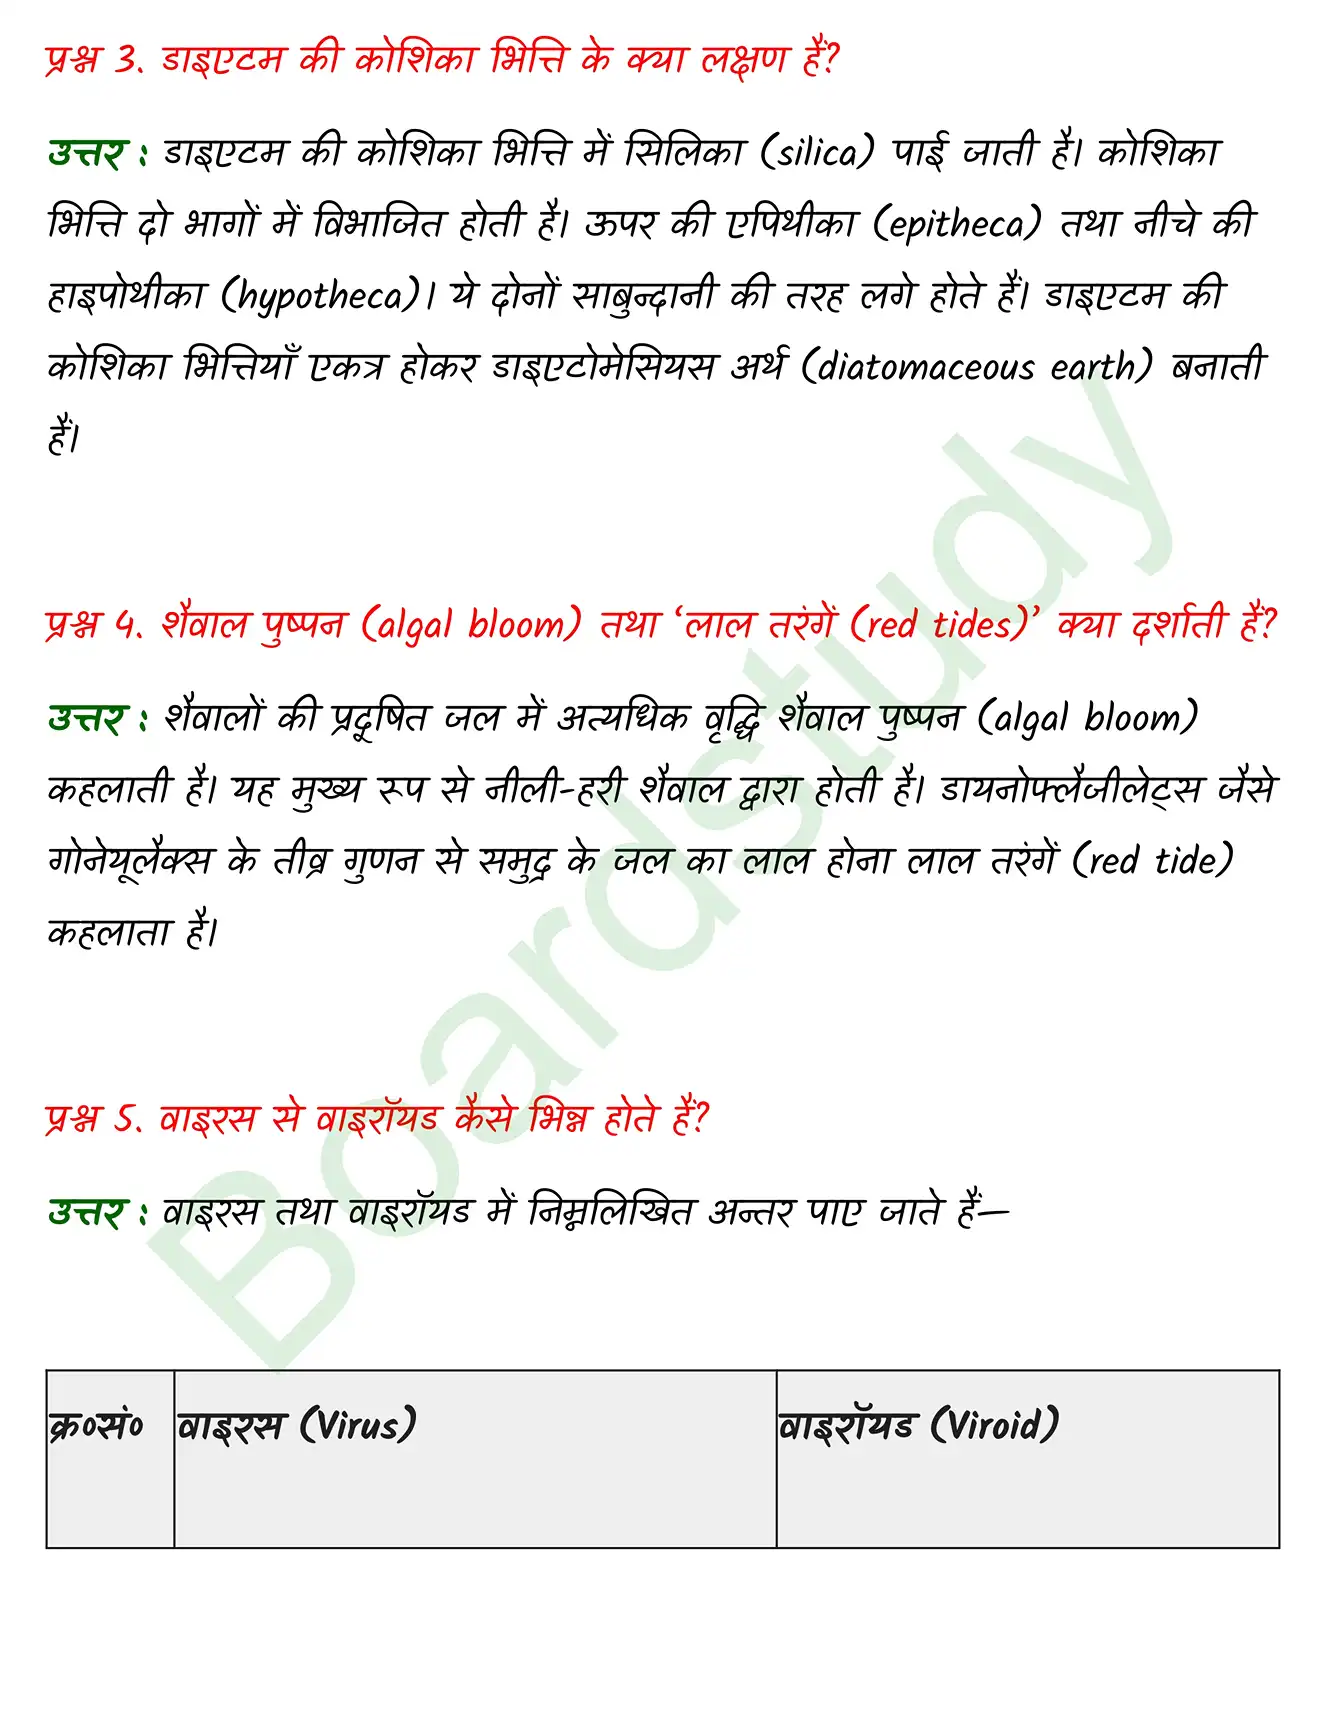 प्रश्न 3. डाइएटम की कोशिका भित्ति के क्या लक्षण हैं?
उत्तर : डाइएटम की कोशिका भित्ति में सिलिका (silica) पाई जाती है। कोशिका
भित्ति दो भागों में विभाजित होती है। ऊपर की एपिथीका (epitheca) तथा नीचे की
हाइपोथीका (hypotheca)। ये दोनों साबुन्दानी की तरह लगे होते हैं। डाइएटम की
कोशिका भित्तियाँ एकत्र होकर डाइएटोमेसियस अर्थ (diatomaceous earth) बनाती
हैं।
प्रश्न 4. शैवाल पुष्पन (algal bloom) तथा ‘लाल तरंगें (red tides)’ क्या दर्शाती हैं?
उत्तर : शैवालों की प्रदूषित जल में अत्यधिक वृद्धि शैवाल पुष्पन (algal bloom)
कहलाती है। यह मुख्य रूप से नीली-हरी शैवाल द्वारा होती है। डायनोफ्लैजीलेट्स जैसे
गोनेयूलैक्स के तीव्र गुणन से समुद्र के जल का लाल होना लाल तरंगें (red tide)
कहलाता है।
प्रश्न 5. वाइरस से वाइरॉयड कैसे भिन्न होते हैं?
उत्तर : वाइरस तथा वाइरॉयड में निम्नलिखित अन्तर पाए जाते हैं—
क्र०सं० वाइरस (Virus) वाइरॉयड (Viroid)
Boardstudy